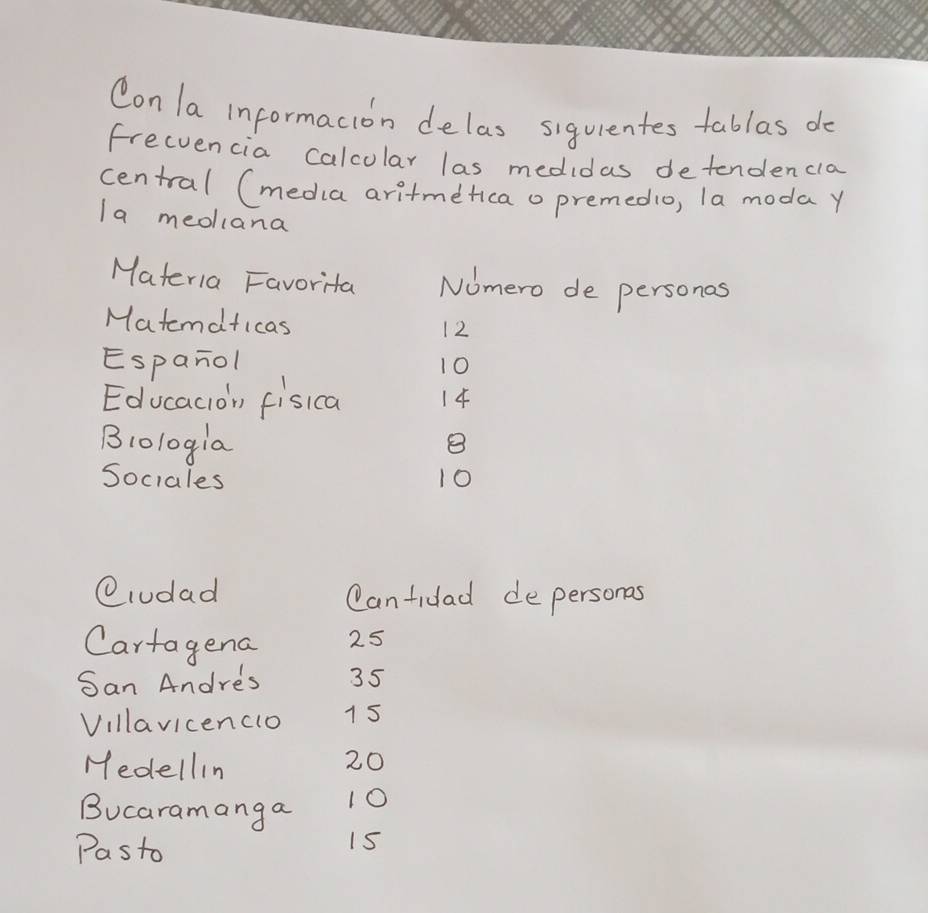 Con la información delas siguientes tablas de
frecuencia calcular las medidas de tendencia
central (media aritmética o premedio, la moda y
la mediana
Materia Favorita Número de personas
Matemáticas 12
Español 10
Educación física 14
Biología 8
Sociales 10
Ciudad Cantidad de personas
Cartagena 25
San Andrés 35
Villavicencio 15
Medellin 20
Bucaramanga 10
Pasto 15